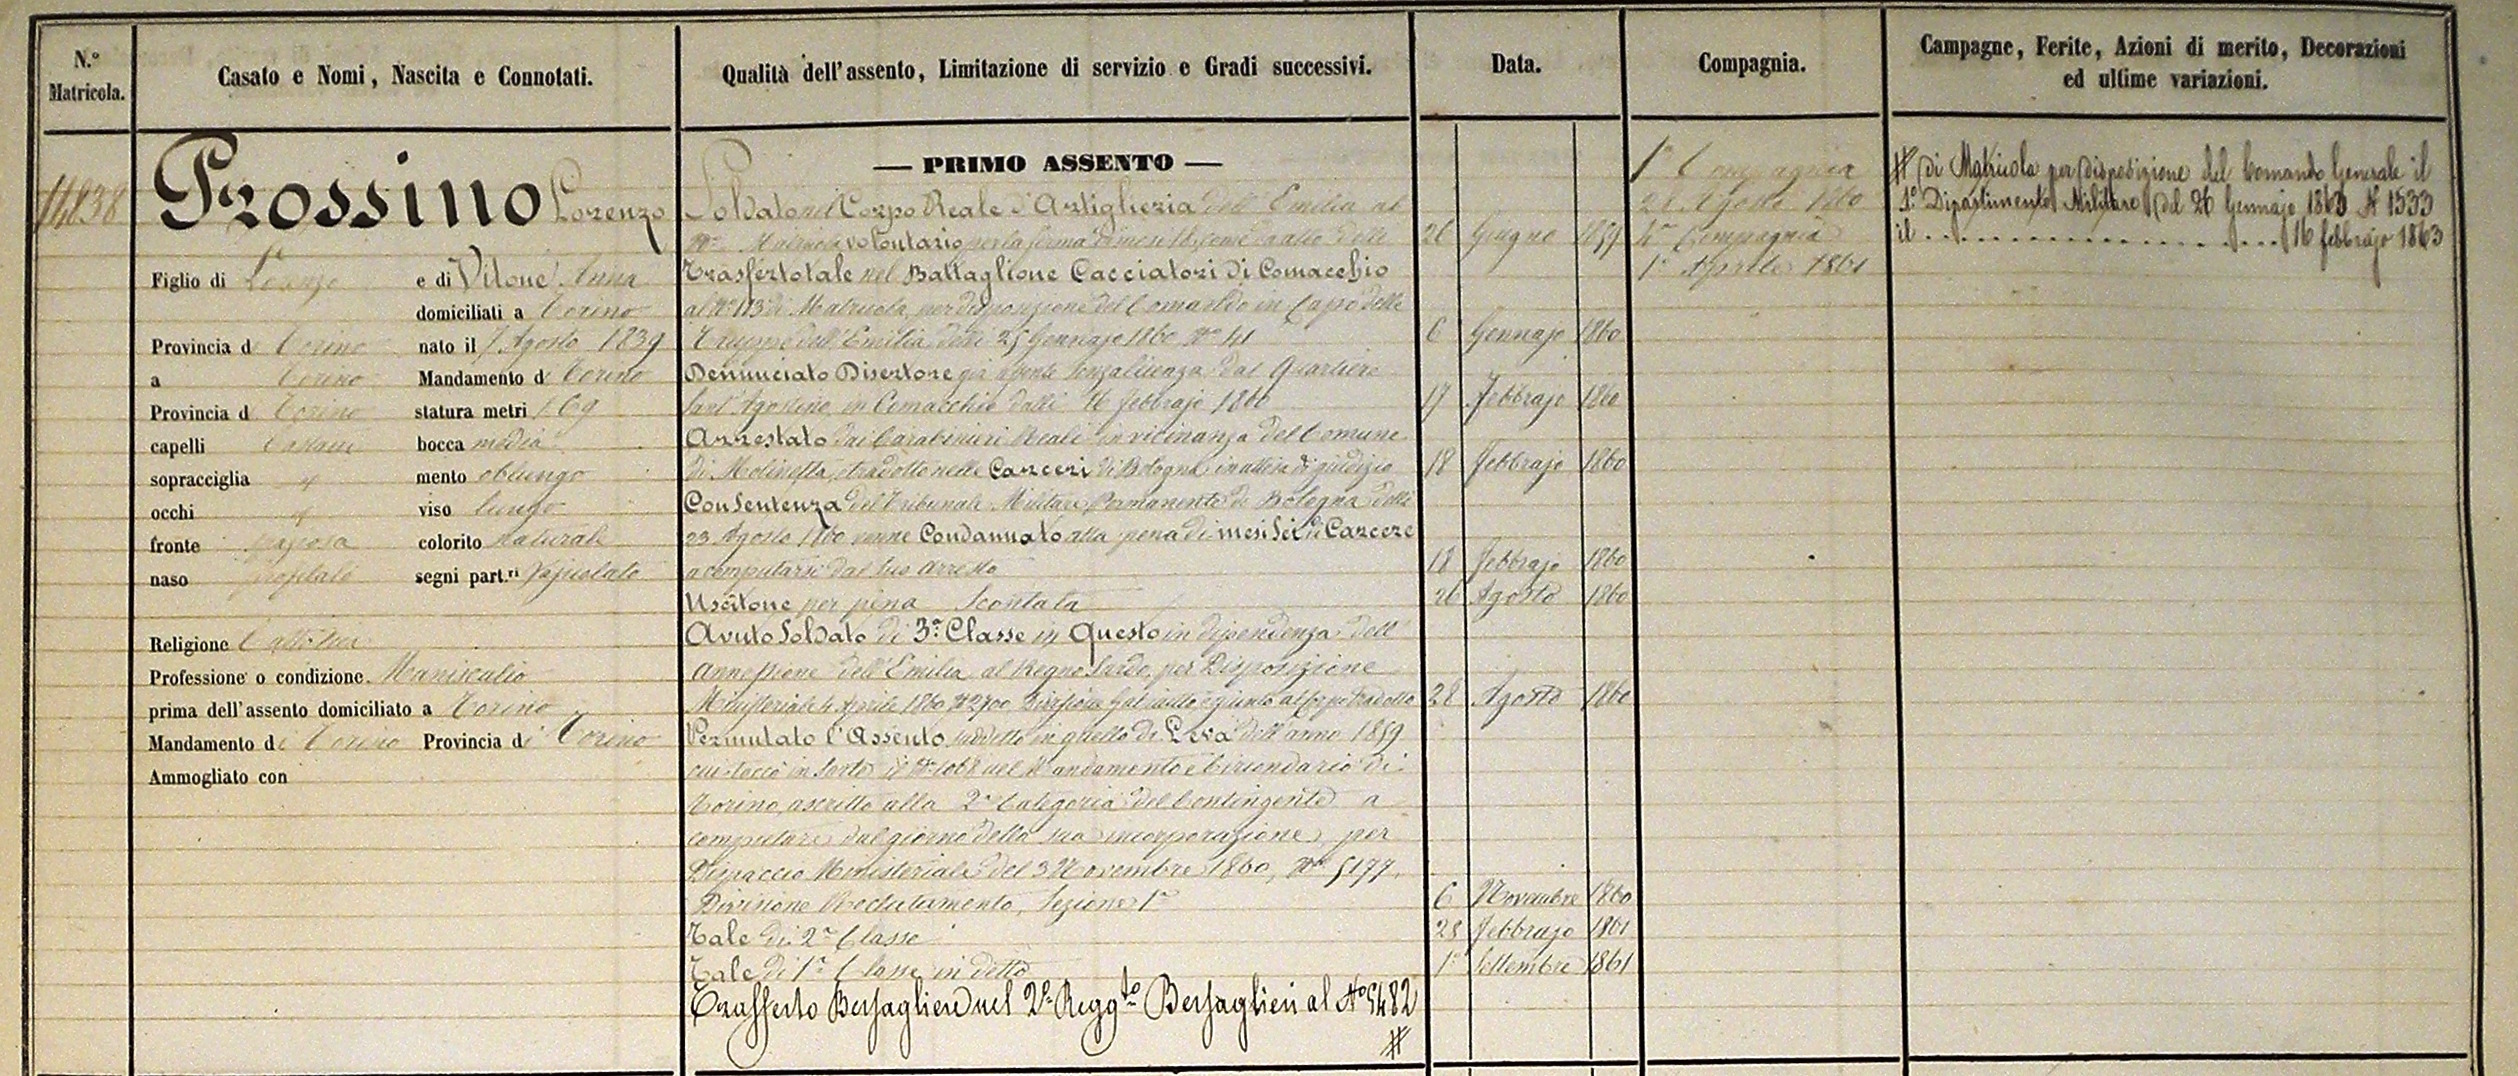 N.° Matricola.
Casato e Nomi, Nascita e Connotati.
Qualità dell'assento, Limitazione di servizio e Gradi successivi.
Data.
Compagnia.
Campagne, Ferite, Azioni di merito, Decorazioni
ed ultime variazioni.
14838
Prossino Lorenzo
Figlio di Lorenzo e di Vitone Anna
domiciliati a Torino
Provincia di Torino nato il 7 Agosto 1839
a Torino Mandamento di Torino
Provincia di Torino statura metri 1 69
capelli Castani bocca media
sopracciglia mento oblungo
occhi viso lungo
fronte spaziosa colorito naturale
naso profilato segni part.ri Vajuolato
Religione Cattolica
Professione o condizione Maniscalco
prima dell'assento domiciliato a Torino
Mandamento di Torino Provincia di Torino
Ammogliato con
— PRIMO ASSENTO —
Soldato nel Corpo Reale d'Artiglieria dell'Emilia al
N° Matricola volontario per la ferma di mesi 18 come da atto delli 26 Giugno 1859
Trasfertotale nel Battaglione Cacciatori di Comacchio
al N° 113 di Matricola, per disposizione del Comando in Capo delle
Truppe dell'Emilia delli 25 Gennajo 1860 N° 41 6 Gennajo 1860
Denunciato Disertore già assente senza licenza dal Quartiere
Sant'Agostino in Comacchio dalli 16 febbrajo 1860 17 Febbrajo 1860
Arrestato dai Carabinieri Reali in vicinanza del Comune
di Molinella, tradotto nelle Carceri di Bologna in attesa di giudizio 18 Febbrajo 1860
Con Sentenza del Tribunale Militare Permanente di Bologna delli
23 Agosto 1860 venne Condannato alla pena di mesi Sei di Carcere
a computarsi dal suo arresto 18 Febbrajo 1860
Uscitone per pena Scontata 26 Agosto 1860
Avuto Soldato di 3a Classe in Questo in dipendenza dell'
annessione dell'Emilia al Regno Sardo, per Disposizione
Ministeriale 4 Aprile 1860 N° 2700 28 Agosto 1860
Permutato l'Assento suddetto in quello di Leva dell'anno 1859
cui toccò in sorte il N° 1068 nel Mandamento e Circondario di
Torino, ascritto alla 2a Categoria del Contingente a
computare dal giorno della sua incorporazione, per
Dispaccio Ministeriale del 3 Novembre 1860, N° 5177,
Divisione Reclutamento, Sezione 1a 6 Novembre 1860
Tale di 2a Classe 25 Febbrajo 1861
Tale di 1a Classe in detto 1° Settembre 1861
Trasferto Bersagliere nel 2° Regg.to Bersaglieri al N° 5482
#
1a Compagnia
28 Agosto 1860
4a Compagnia
1° Aprile 1861
# di Matricola per disposizione del Comando Generale il
1° Dipartimento Militare del 26 Gennajo 1863 N 1533
il . . . . . . . . . . . . . . 16 febbrajo 1863